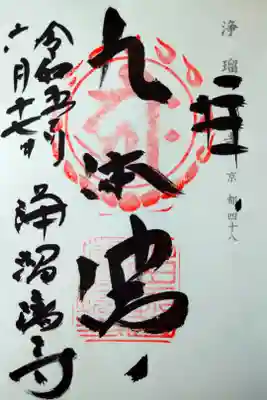 浄瑠 寺 京都四十八
九体佛
令和五年
六月十七日
浄瑠璃寺